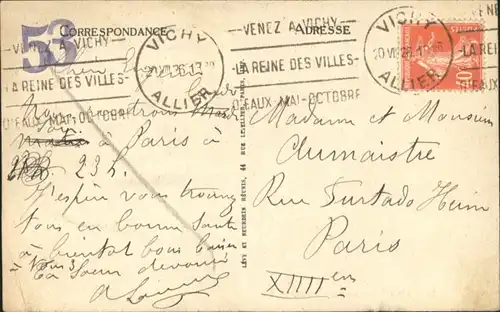 53
CORRESPONDANCE
ADRESSE
VENEZ A VICHY
LA REINE DES VILLES
D'EAUX-MAI-OCTOBRE
VICHY
ALLIER
VENEZ A VICHY
LA REINE DES VILLES
D'EAUX-MAI-OCTOBRE
VICHY
ALLIER
Nous rentrons Mardi
à Paris à
23 h.
J'espère vous trouver
tous en bonne santé
à bientôt bons baisers
à vous 3
Ta Soeur dévouée
LÉVY ET NEURDEIN RÉUNIS, 44 RUE LETELLIER, PARIS
Madame et Monsieur
Aumaistre
Rue Furtado Heim
Paris
XIIII em